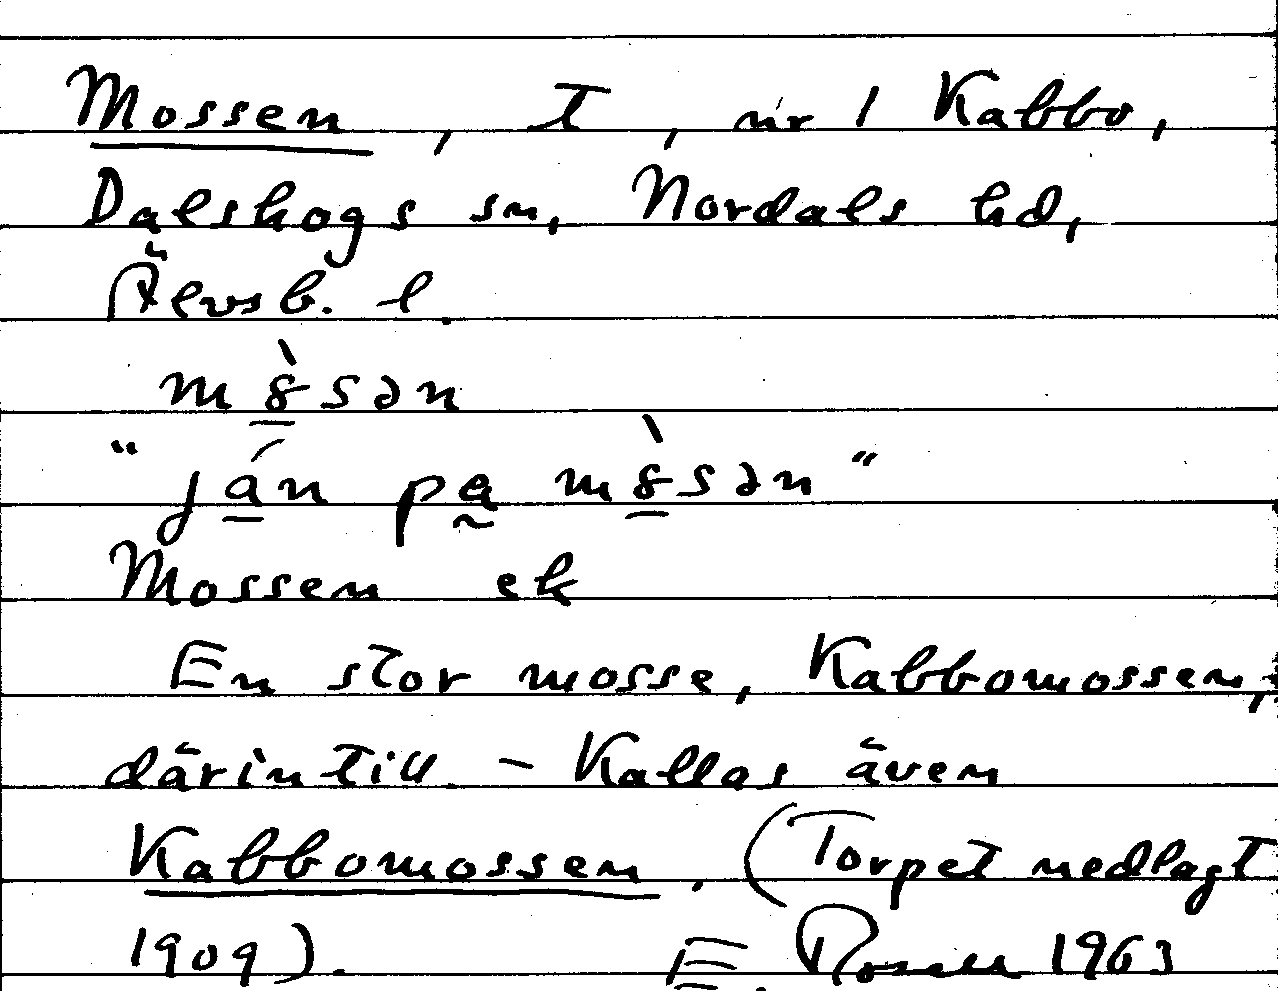 Mossen, T, nr 1 Kabbo,
Dalskogs sn, Nordals hd,
Älvsb. l.
mòsən
"ján pa mòsən"
Mossen ek
En stor mosse, Kabbomossen,
därintill - Kallas även
Kabbomossen. (Torpet nedlagt
1909). E. 1963